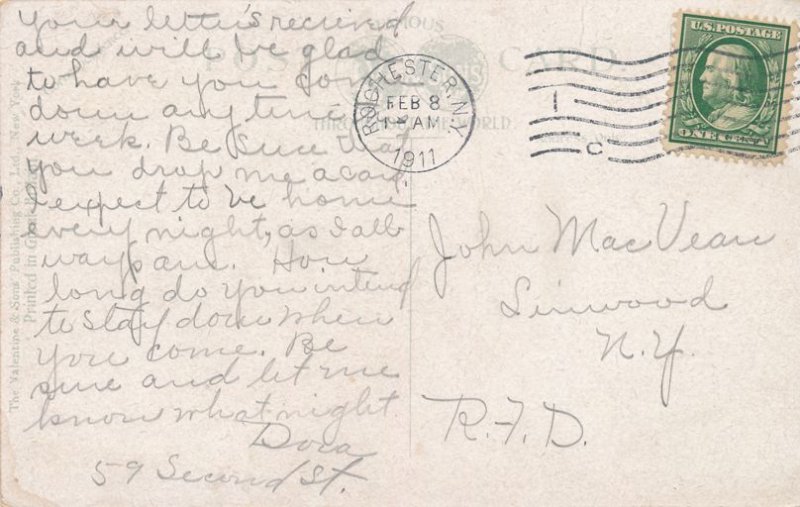 Your letter's recieved
and will be glad
to have you come
down any time
week. Be sure
you drop me a card
I expect to be home
every night, as I all
ways am. How
long do you intend
to stay down when
you come. Be
sure and let me
know what night
Dora
59 Second St.
POST CARD
ROCHESTER, N.Y.
FEB 8
AM
1911
1
C
U.S. POSTAGE
ONE CENT
John MacVean
Linwood
N.Y.
R.F.D.
The Valentine & Sons' Publishing Co., Ltd., New York
Printed in